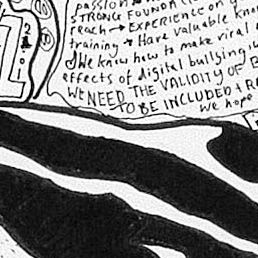 passion
STRONG FOUNDA
reach → Experience on
training → Have valuable kno
We know how to make viral
effects of digital bullying
WE NEED THE VALIDITY OF B
TO BE INCLUDED & R
We hope